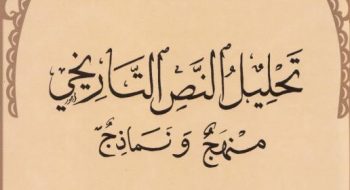 تَحْلِيْلُ النَّصِ التَّارِيْخِي
مَنْهَجٌ وَ نَمَاذِجٌ